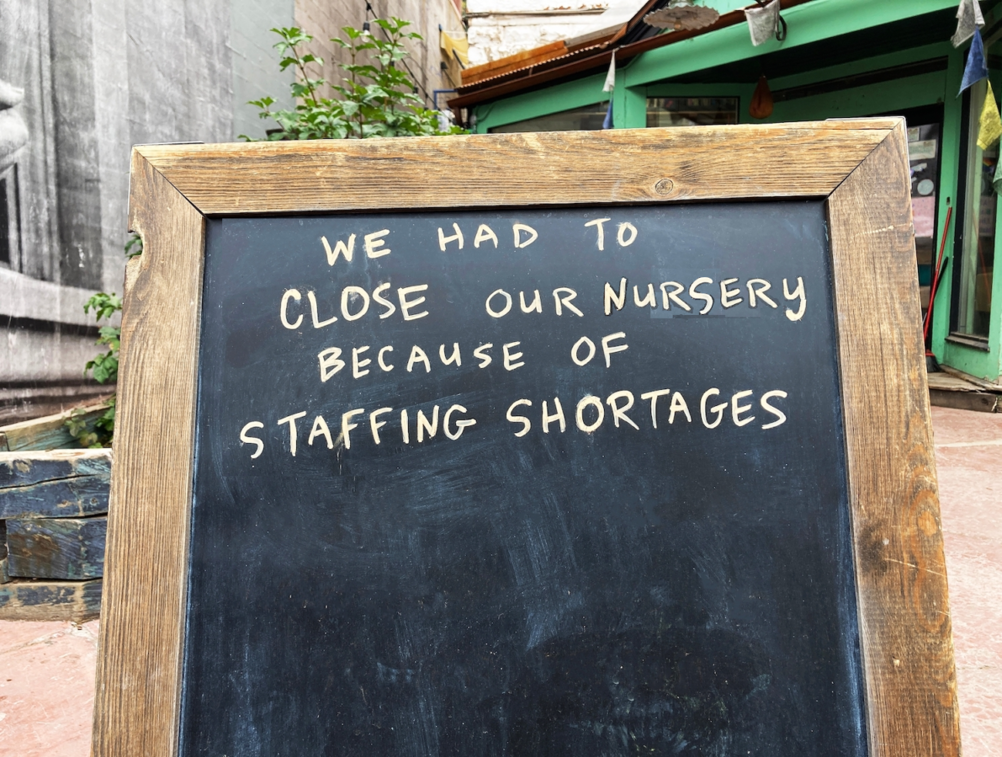 WE HAD TO
CLOSE OUR NURSERY
BECAUSE OF
STAFFING SHORTAGES